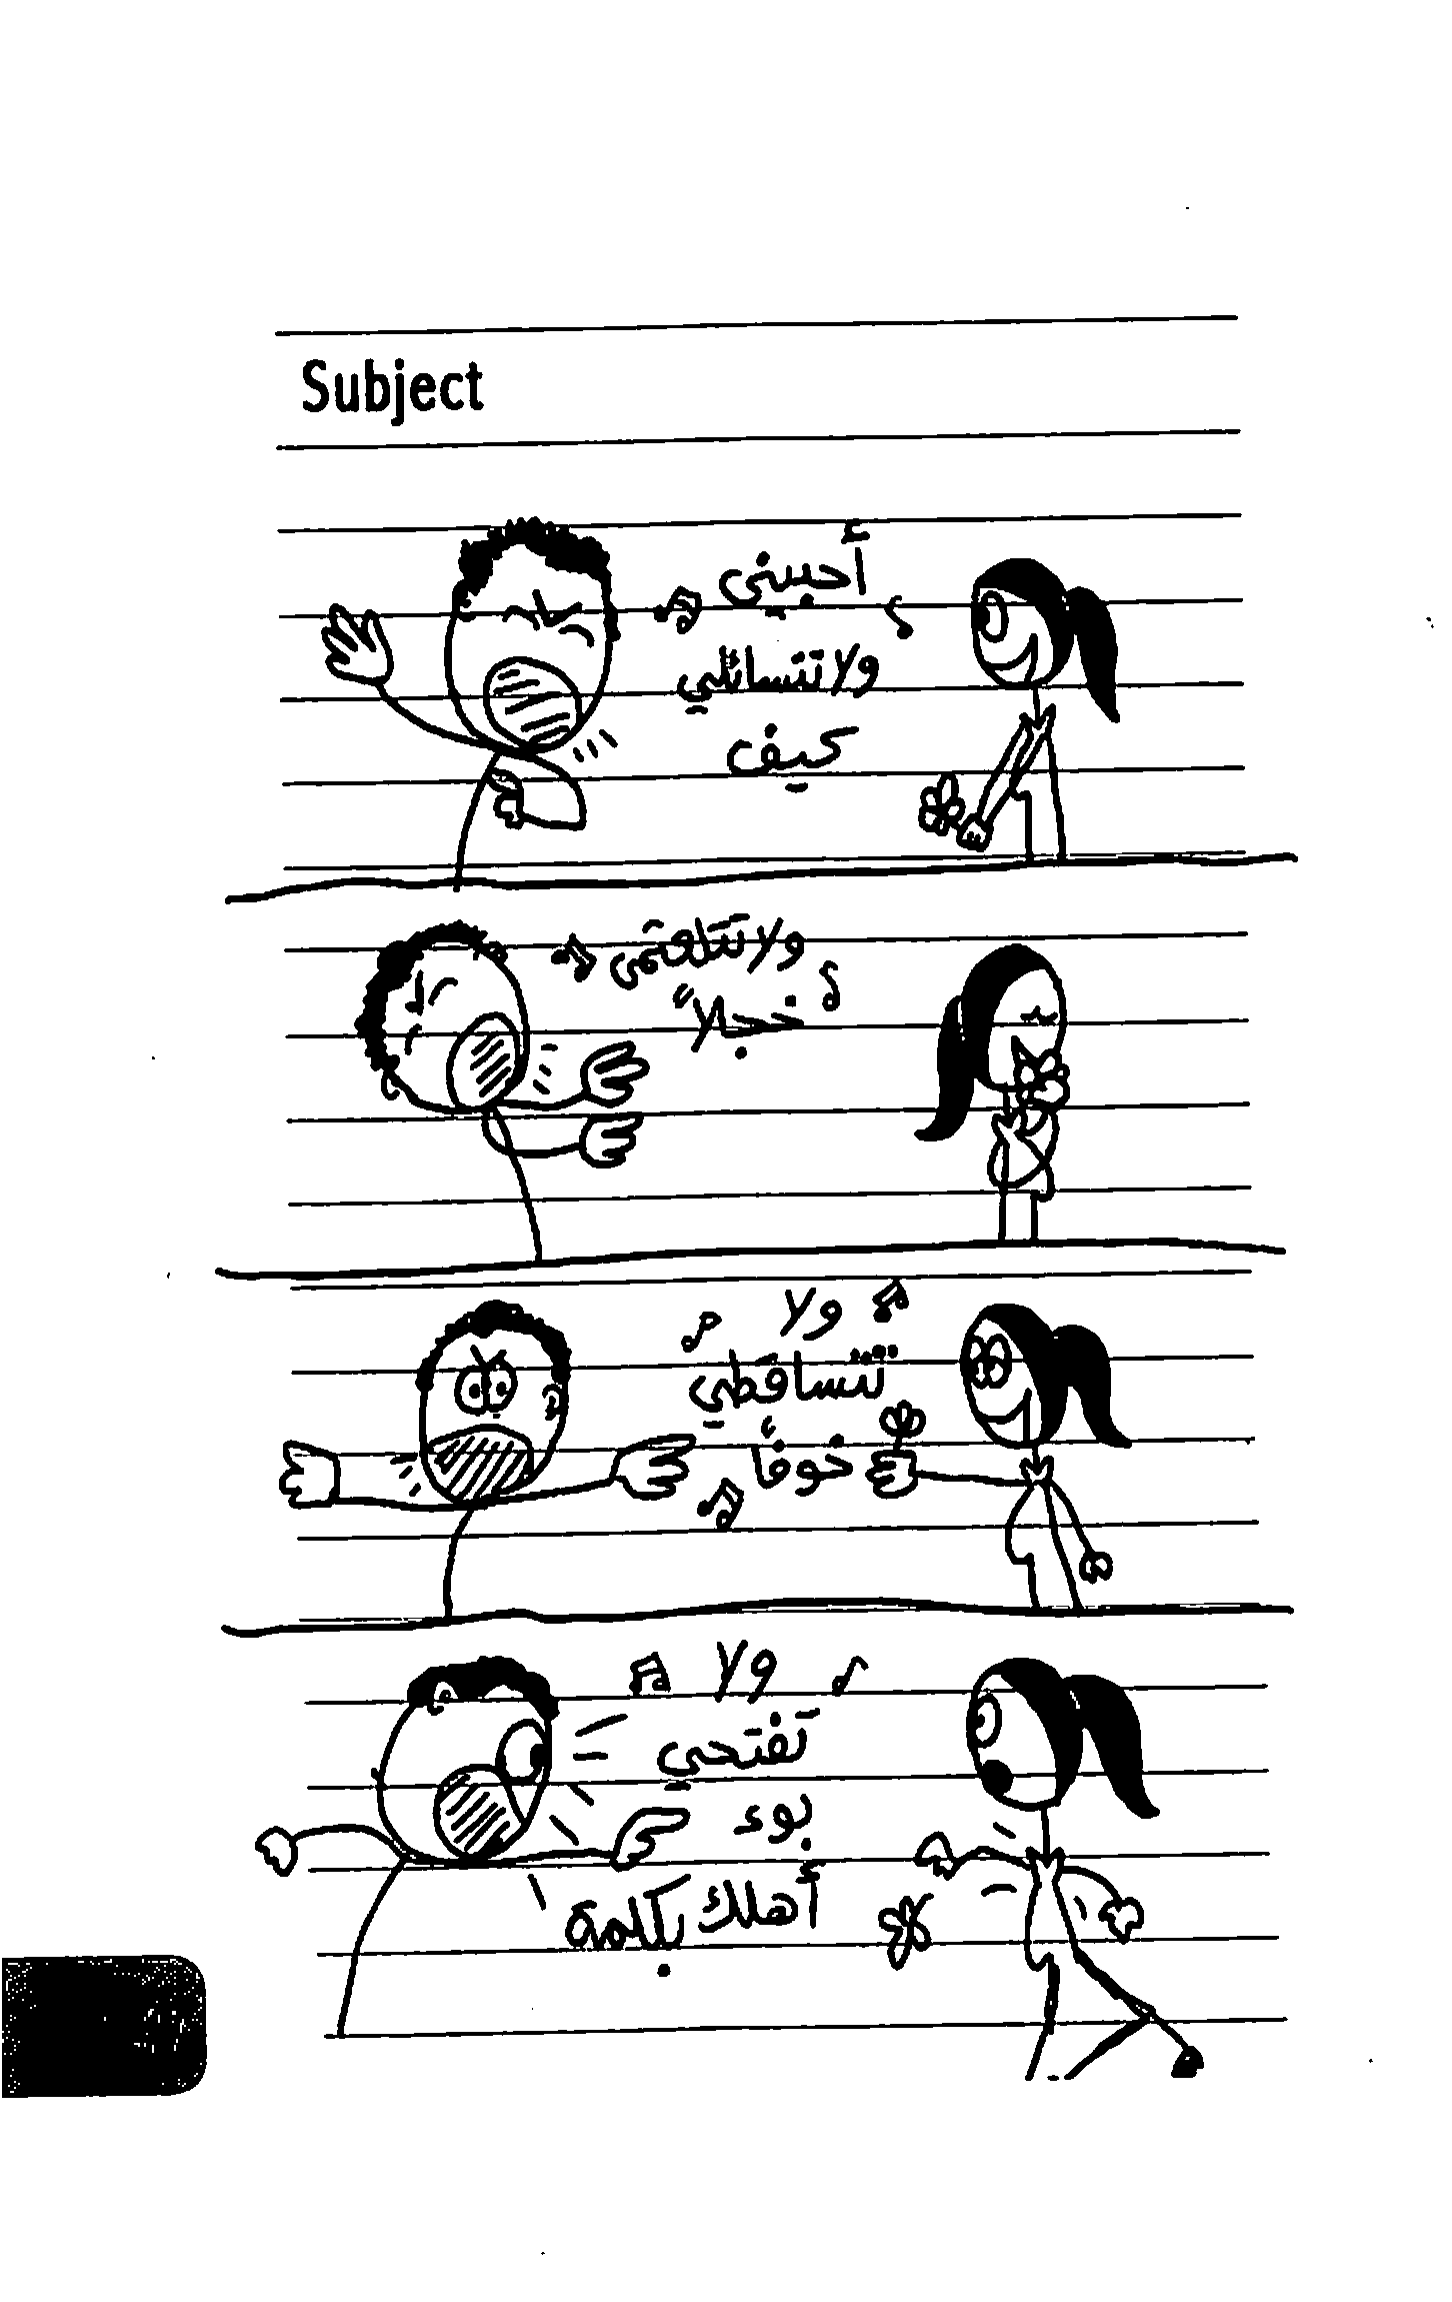 Subject
أحبيني
ولا تتسائلي
كيف
ولا تتلعثمي
خجلاً
ولا
تتساقطي
خوفاً
ولا
تفتحي
بوء
أهلك بكلمة